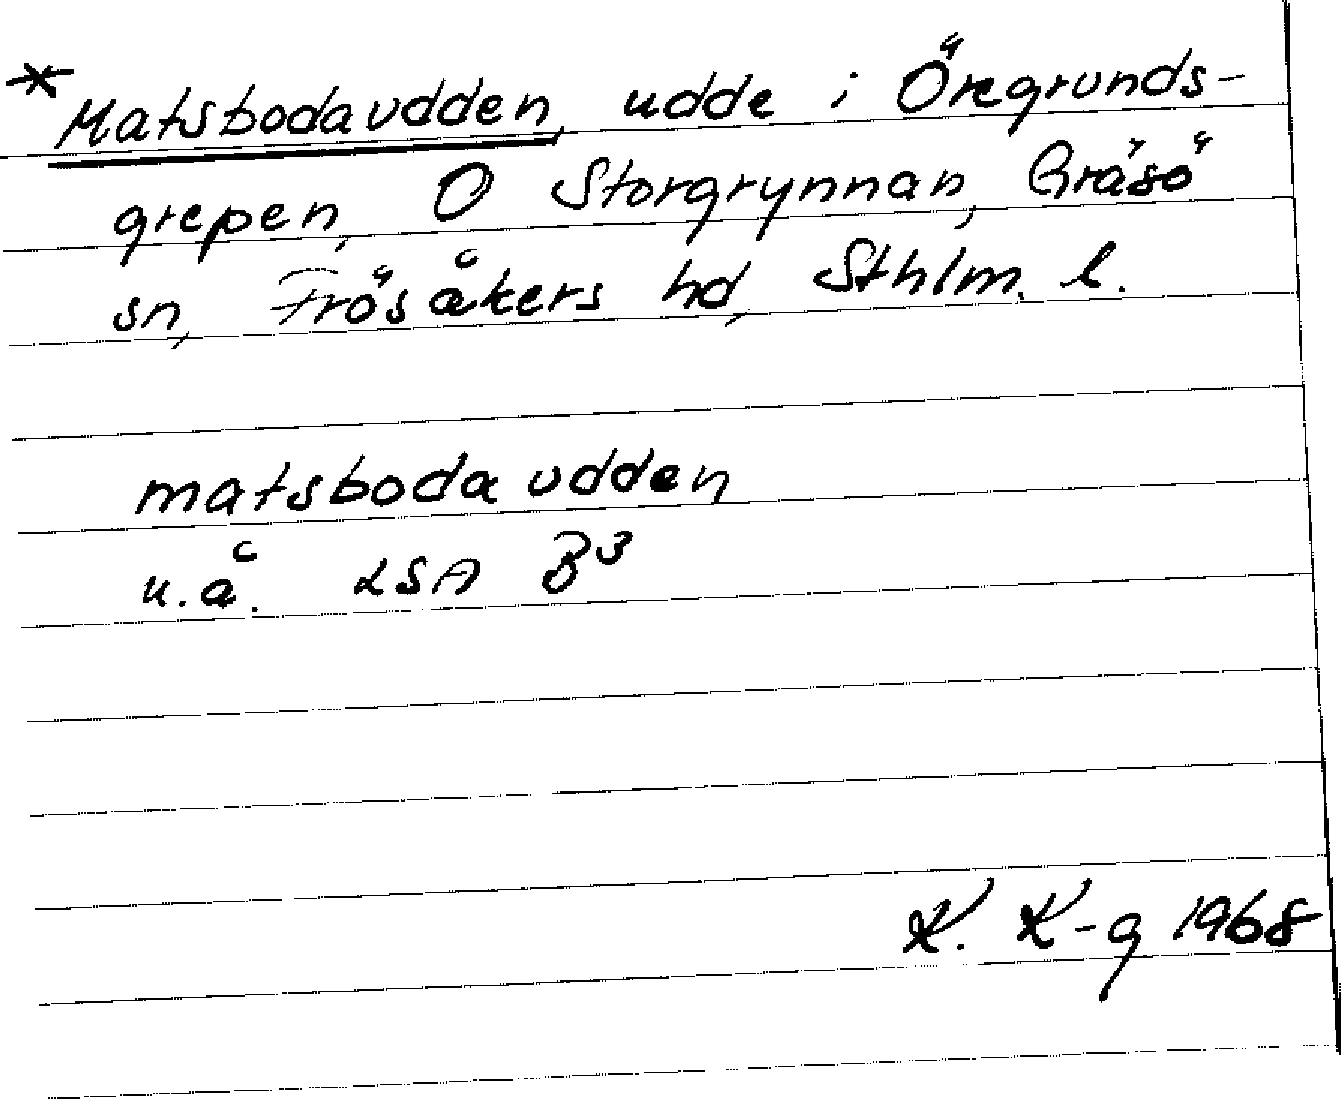 * Matsbodaudden, udde i Öregrunds-
grepen, O Storgrynnan, Gräsö
sn, Frösåkers hd, Sthlm. l.
matsboda udden
u.å. LSA B³
K. K-g 1968